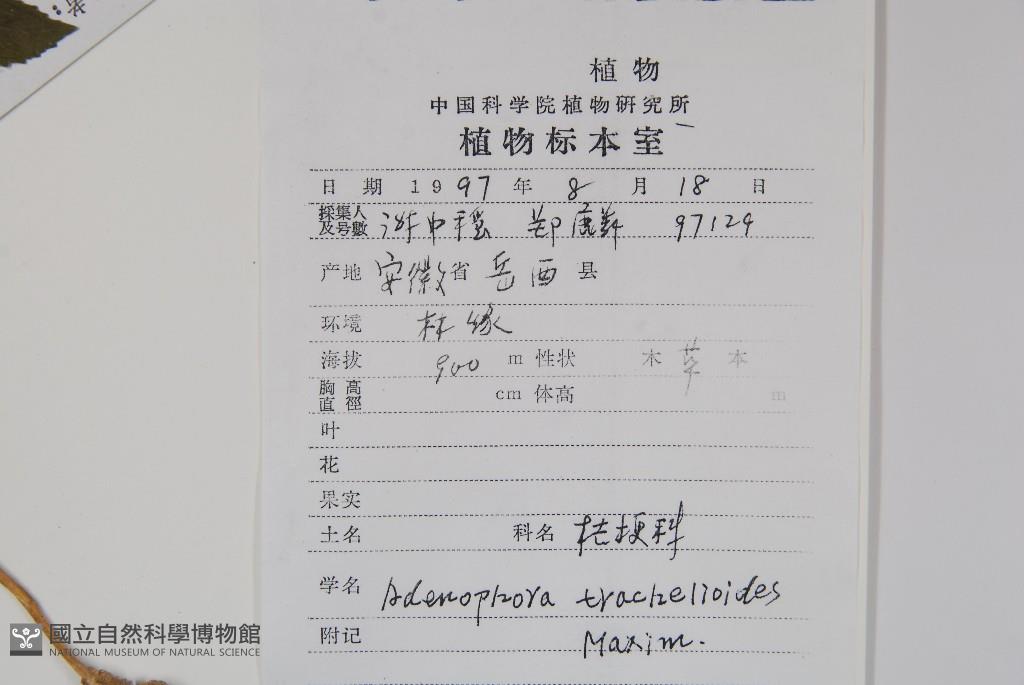 植物
中国科学院植物研究所
植物标本室
日 期 1997 年 8 月 18 日
採集人及号數 97124
产地 安徽省 岳西 县
环境 林缘
海拔 900 m 性状 木 草 本
胸高直徑 cm 体高 m
叶
花
果实
土名 科名 桔梗科
学名 Adenophora trachelioides
附记 Maxim.
國立自然科學博物館
NATIONAL MUSEUM OF NATURAL SCIENCE